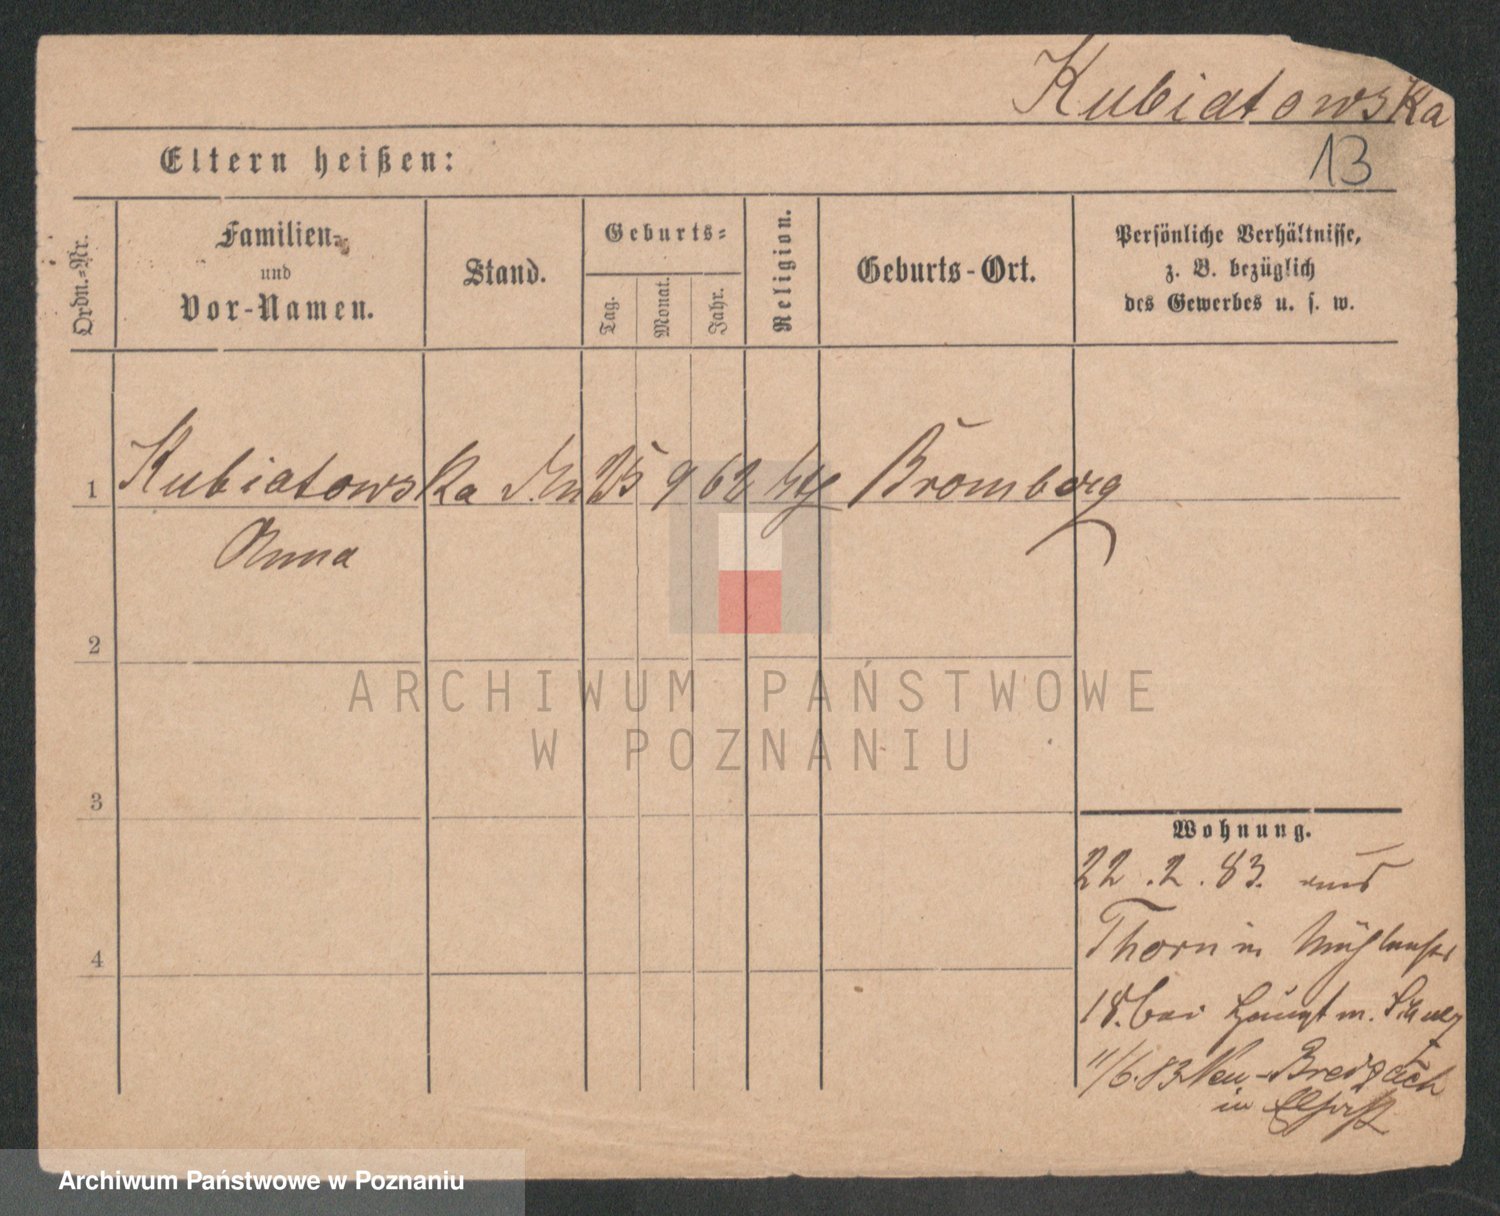 Kubiatowska
13
Eltern heißen:
Ordn.-Nr.
Familien-
und
Vor-Namen.
Stand.
Geburts-
Tag.
Monat.
Jahr.
Religion.
Geburts-Ort.
Persönliche Verhältnisse,
z. B. bezüglich
des Gewerbes u. s. w.
1 Kubiatowska 25 9 62 Bromberg
Anna
2
ARCHIWUM PAŃSTWOWE
W POZNANIU
3
Wohnung.
22.2.83. aus
Thorn in
18. bei Hauptm. Schulz
4
11/6.83 Neu-Breisach
in Elsaß
Archiwum Państwowe w Poznaniu